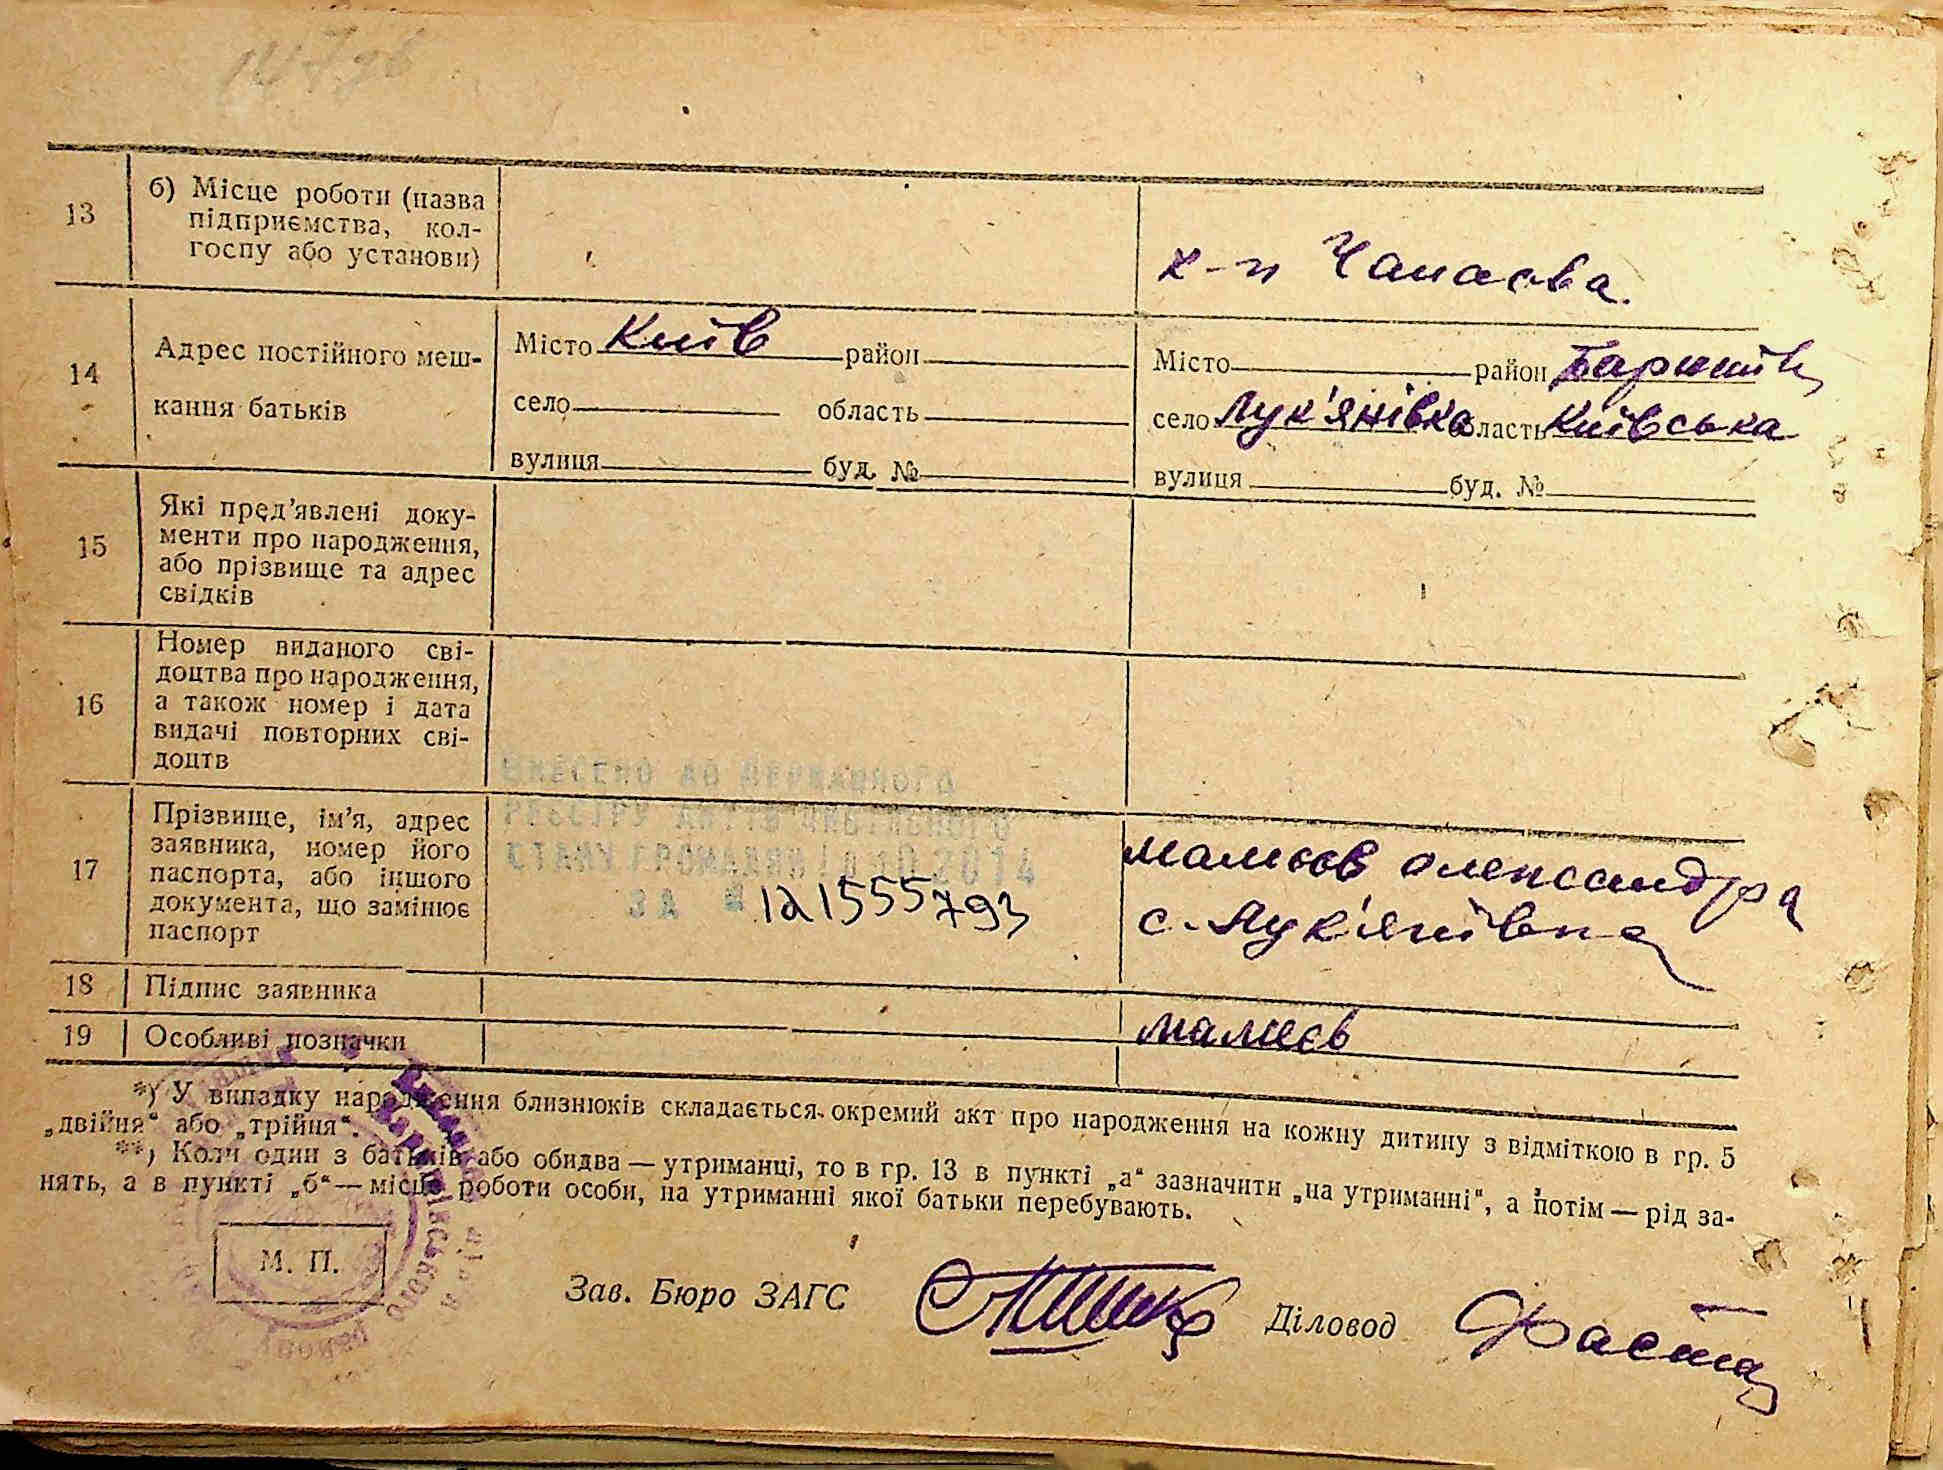 13
б) Місце роботи (назва
підприємства, кол-
госпу або установи)
к-п Чапаєва.
14
Адрес постійного меш-
кання батьків
Місто Київ район
село область
вулиця буд. №
Місто район Баришів
село Лук'янівка область Київська
вулиця буд. №
15
Які пред'явлені доку-
менти про народження,
або прізвище та адрес
свідків
16
Номер виданого сві-
доцтва про народження,
а також номер і дата
видачі повторних сві-
доцтв
17
Прізвище, ім'я, адрес
заявника, номер його
паспорта, або іншого
документа, що замінює
паспорт
ВНЕСЕНО ДО ДЕРЖАВНОГО
РЕЄСТРУ АКТІВ ЦИВІЛЬНОГО
СТАНУ ГРОМАДЯН 2014
ЗА № 121555793
малиєв олександра
с. Лук'янівка
18
Підпис заявника
19
Особливі позначки
малиєв
*) У випадку народження близнюків складається окремий акт про народження на кожну дитину з відміткою в гр. 5
„двійня“ або „трійня“.
**) Коли один з батьків або обидва — утриманці, то в гр. 13 в пункті „а“ зазначити „на утриманні“, а потім — рід за-
нять, а в пункті „б“ — місце роботи особи, на утриманні якої батьки перебувають.
М. П.
Зав. Бюро ЗАГС
Діловод